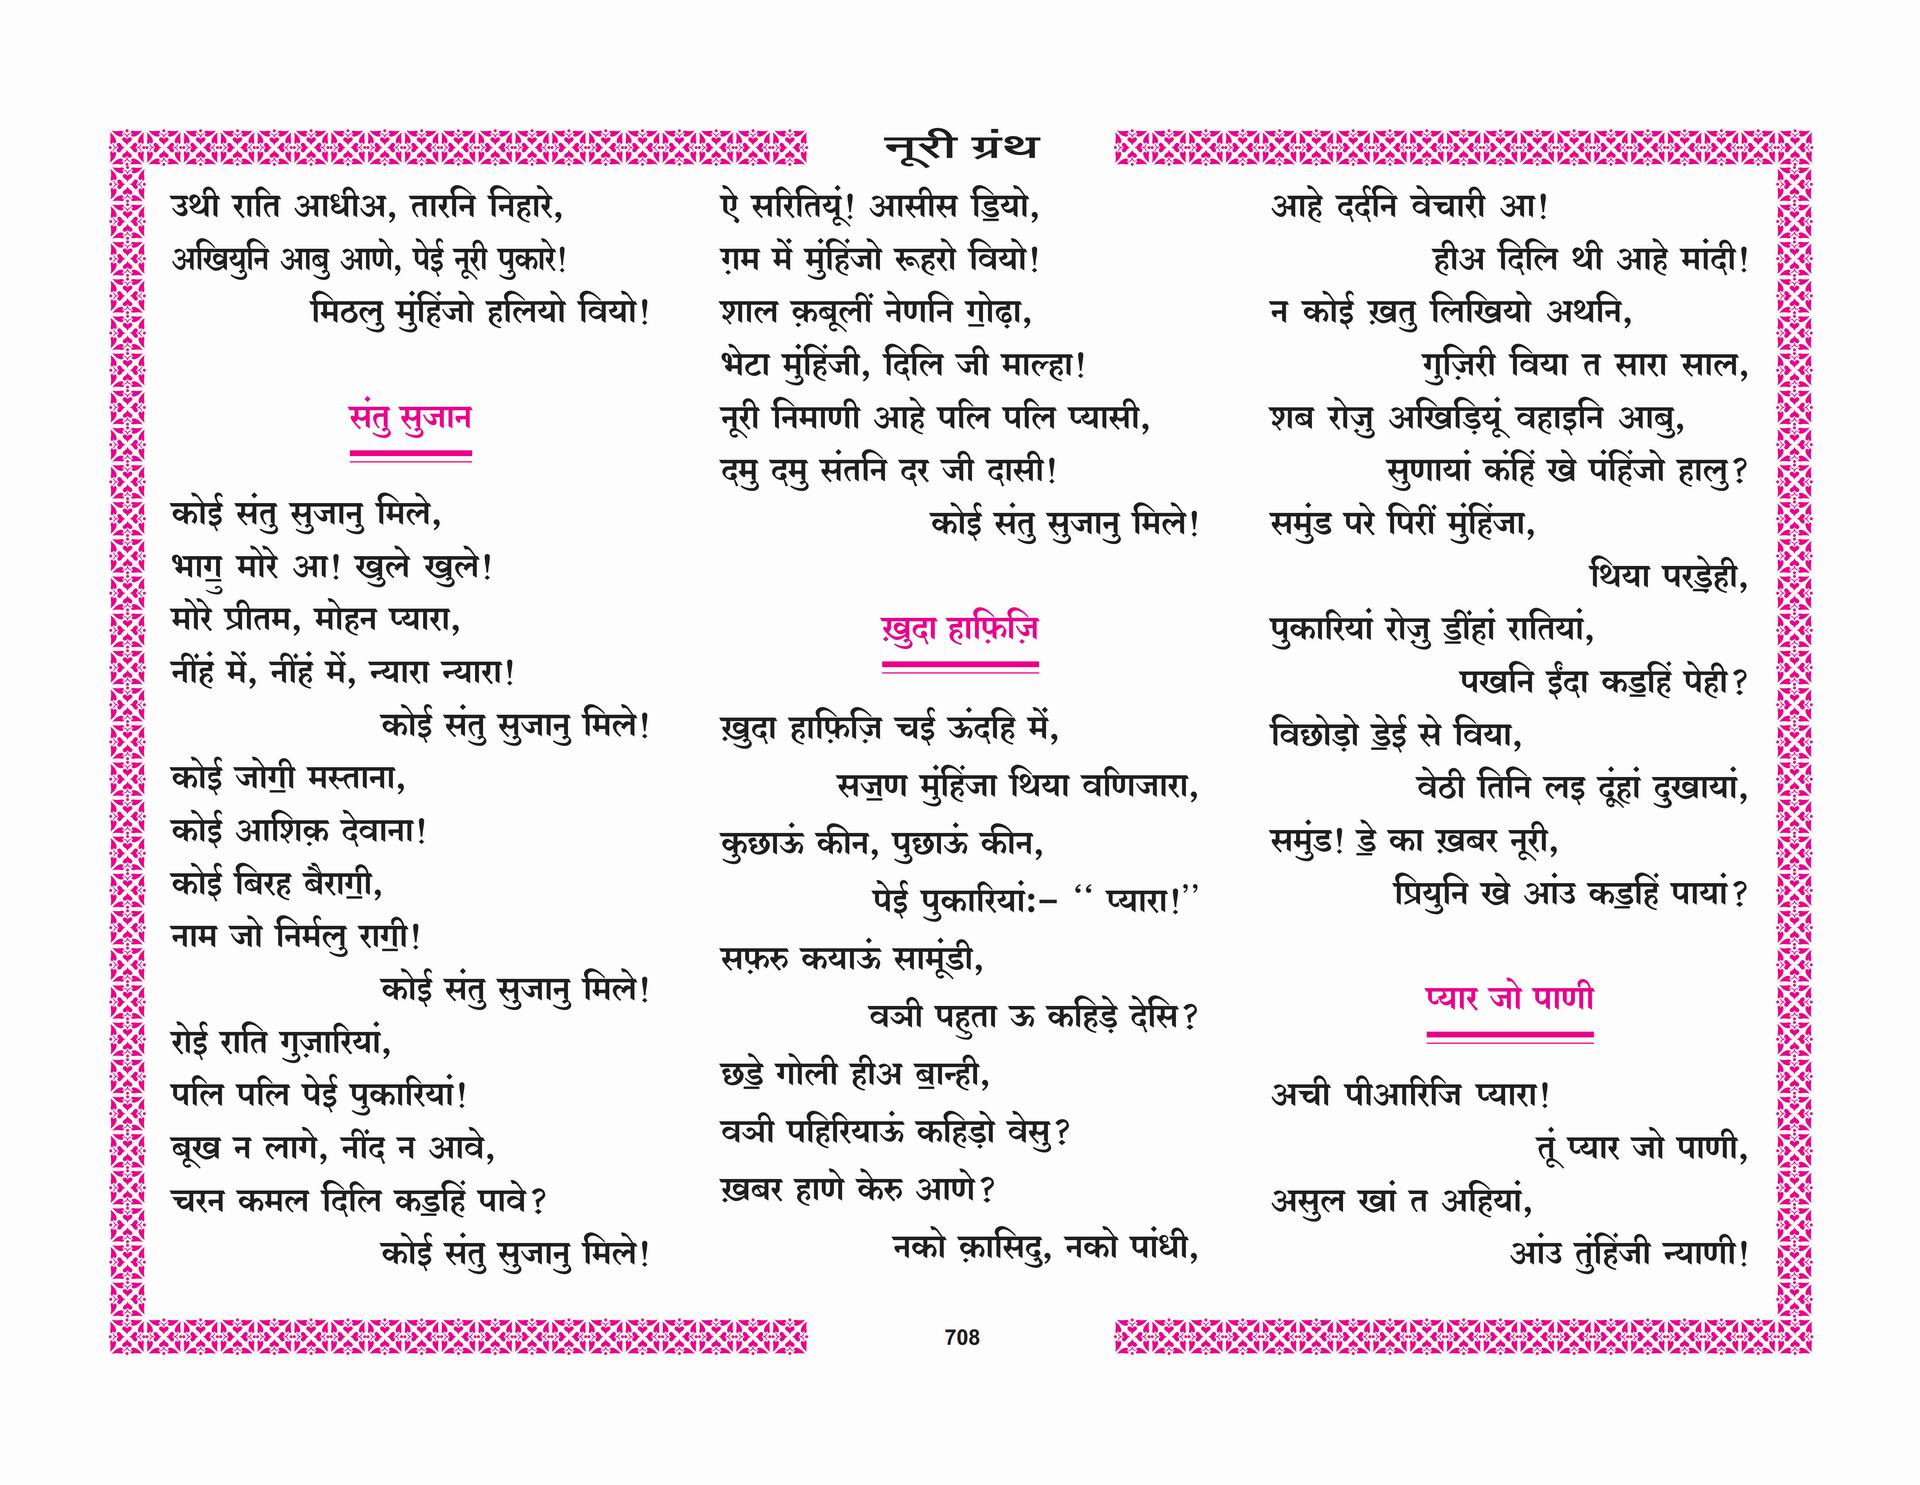 नूरी ग्रंथ
उथी राति आधीअ, तारनि निहारे,
अखियुनि आबु आणे, पेई नूरी पुकारे!
मिठलु मुंहिंजो हलियो वियो!
संतु सुजान
कोई संतु सुजानु मिले,
भाॻु मोरे आ! खुले खुले!
मोरे प्रीतम, मोहन प्यारा,
नींहं में, नींहं में, न्यारा न्यारा!
कोई संतु सुजानु मिले!
कोई जोॻी मस्ताना,
कोई आशिक़ देवाना!
कोई बिरह बैराॻी,
नाम जो निर्मलु राॻी!
कोई संतु सुजानु मिले!
रोई राति गुज़ारियां,
पलि पलि पेई पुकारियां!
बूख न लागे, नींद न आवे,
चरन कमल दिलि कॾहिं पावे?
कोई संतु सुजानु मिले!
ऐ सरितियूं! आसीस ॾियो,
ग़म में मुंहिंजो रूहरो वियो!
शाल क़बूलीं नेणनि ॻोढ़ा,
भेटा मुंहिंजी, दिलि जी माल्हा!
नूरी निमाणी आहे पलि पलि प्यासी,
दमु दमु संतनि दर जी दासी!
कोई संतु सुजानु मिले!
ख़ुदा हाफ़िज़ि
ख़ुदा हाफ़िज़ि चई ऊंदहि में,
सॼण मुंहिंजा थिया वणिजारा,
कुछाऊं कीन, पुछाऊं कीन,
पेई पुकारियां:– ‘‘ प्यारा!’’
सफ़रु कयाऊं सामूंडी,
वञी पहुता ऊ कहिड़े देसि?
छॾे गोली हीअ ॿान्ही,
वञी पहिरियाऊं कहिड़ो वेसु?
ख़बर हाणे केरु आणे?
नको क़ासिदु, नको पांधी,
आहे दर्दनि वेचारी आ!
हीअ दिलि थी आहे मांदी!
न कोई ख़तु लिखियो अथनि,
गुज़िरी विया त सारा साल,
शब रोज़ु अखिड़ियूं वहाइनि आबु,
सुणायां कंहिं खे पंहिंजो हालु?
समुंड परे पिरीं मुंहिंजा,
थिया परॾेही,
पुकारियां रोज़ु ॾींहां रातियां,
पखनि ईंदा कॾहिं पेही?
विछोड़ो ॾेई से विया,
वेठी तिनि लइ दूंहां दुखायां,
समुंड! ॾे का ख़बर नूरी,
प्रियुनि खे आंउ कॾहिं पायां?
प्यार जो पाणी
अची पीआरिजि प्यारा!
तूं प्यार जो पाणी,
असुल खां त अहियां,
आंउ तुंहिंजी न्याणी!
708